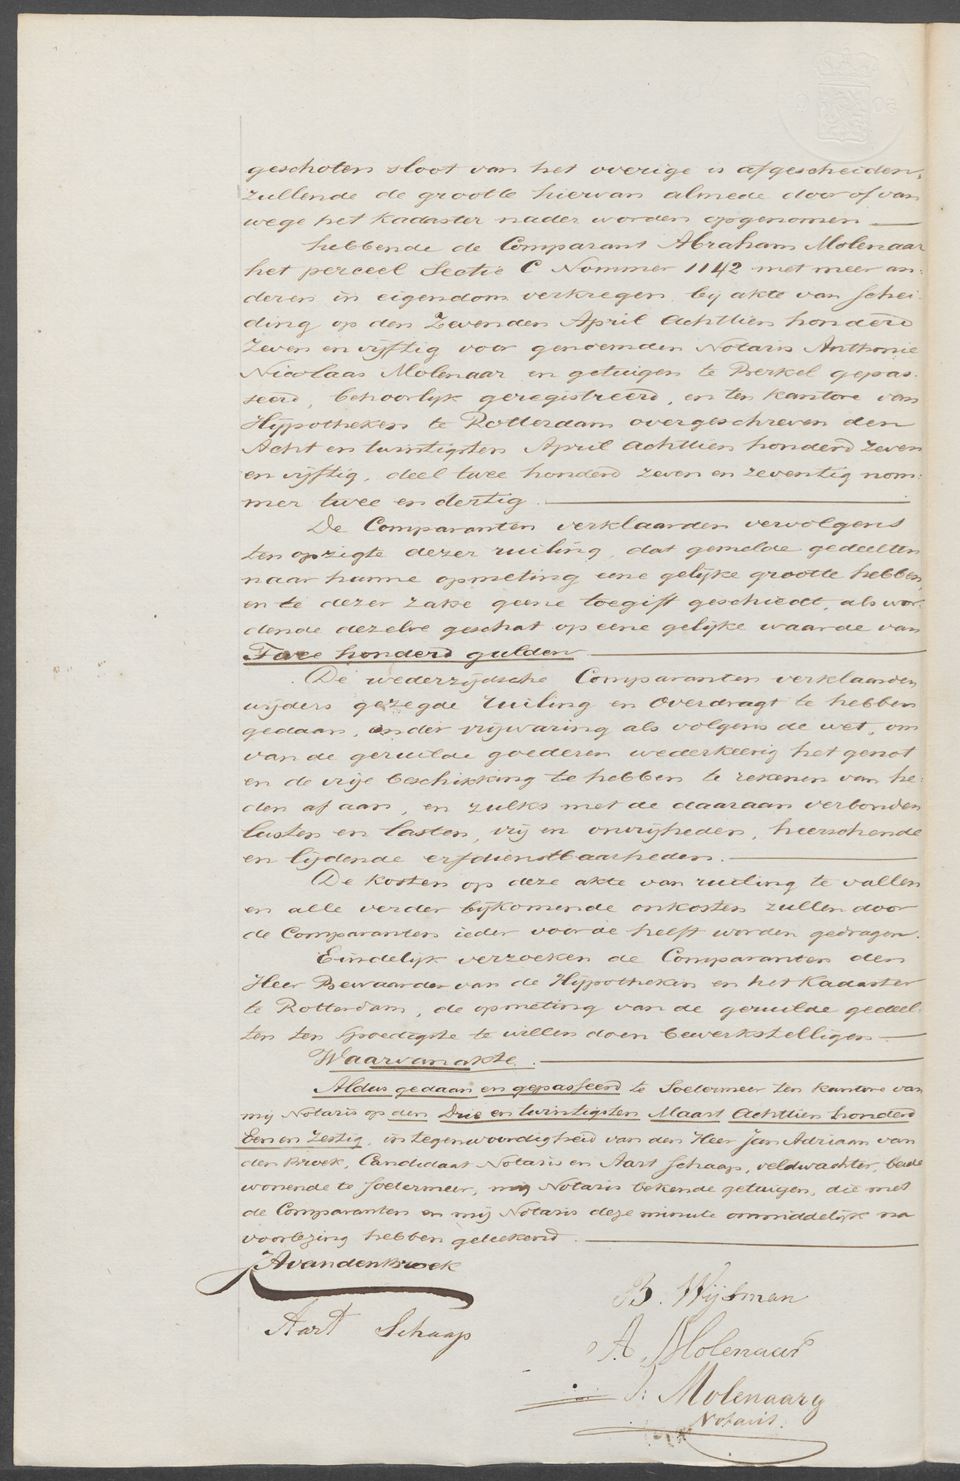 geschoten sloot van het overige is afgescheiden,
zullende de grootte hiervan almede door of van
wege het Kadaster nader worden opgenomen
hebbende de Comparant Abraham Molenaar
het perceel Sectie C Nommer 1142 met meer an:
deren in eigendom verkregen bij akte van schei
ding op den Zevenden April Achttien honderd
Zeven en vijftig voor genoemden Notaris Anthonie
Nicolaas Molenaar en getuigen te Berkel gepas.
seerd, behoorlijk geregistreerd, en ten kantore van
Hijpotheken te Rotterdam overgeschreven den
Acht en twintigsten April achttien honderd zeven
en vijftig, deel twee honderd zeven en zeventig nom:
mer twee en dertig.
De Comparanten verklaarden vervolgens
ten opzigte dezer ruiling, dat gemelde gedeelten
naar hunne opmeting eene gelijke grootte hebben,
en te dezer zake geene toegift geschiedt, als wor
dende dezelve geschat op eene gelijke waarde van
Twee honderd gulden
De wederzijdsche Comparanten verklaarden
wijders gezegde ruiling en overdragt te hebben
gedaan, onder vrijwaring als volgens de wet, om
van de geruilde goederen wederkeerig het genot
en de vrije beschikking te hebben te rekenen van he:
den af aan, en zulks met de daaraan verbonden
lusten en lasten, vrij en onvrijheden, heerschende
en lijdende erfdienstbaarheden.
De kosten op deze akte van ruiling te vallen
en alle verder bijkomende onkosten zullen door
de Comparanten ieder voor de helft worden gedragen.
Eindelijk verzoeken de Comparanten den
Heer Bewaarder van de Hijpotheken en het Kadaster
te Rotterdam, de opmeting van de geruilde gedeel:
ten ten spoedigste te willen doen bewerkstelligen
Waarvan akte.
Aldus gedaan en gepasseerd te Soetermeer ten kantore van
mij Notaris op den Drie en twintigsten Maart Achttien honderd
Een en Zestig, in tegenwoordigheid van den Heer Jan Adriaan van
den Broek, Candidaat Notaris en Aart Schaap, veldwachter, beide
wonende te Soetermeer, mij Notaris bekende getuigen, die met
de Comparanten en mij Notaris deze minute onmiddelijk na
voorlezing hebben geteekend.
JAvandenBroek
B. Wijsman
Aart Schaap
A. Molenaar
Molenaar
Notaris.